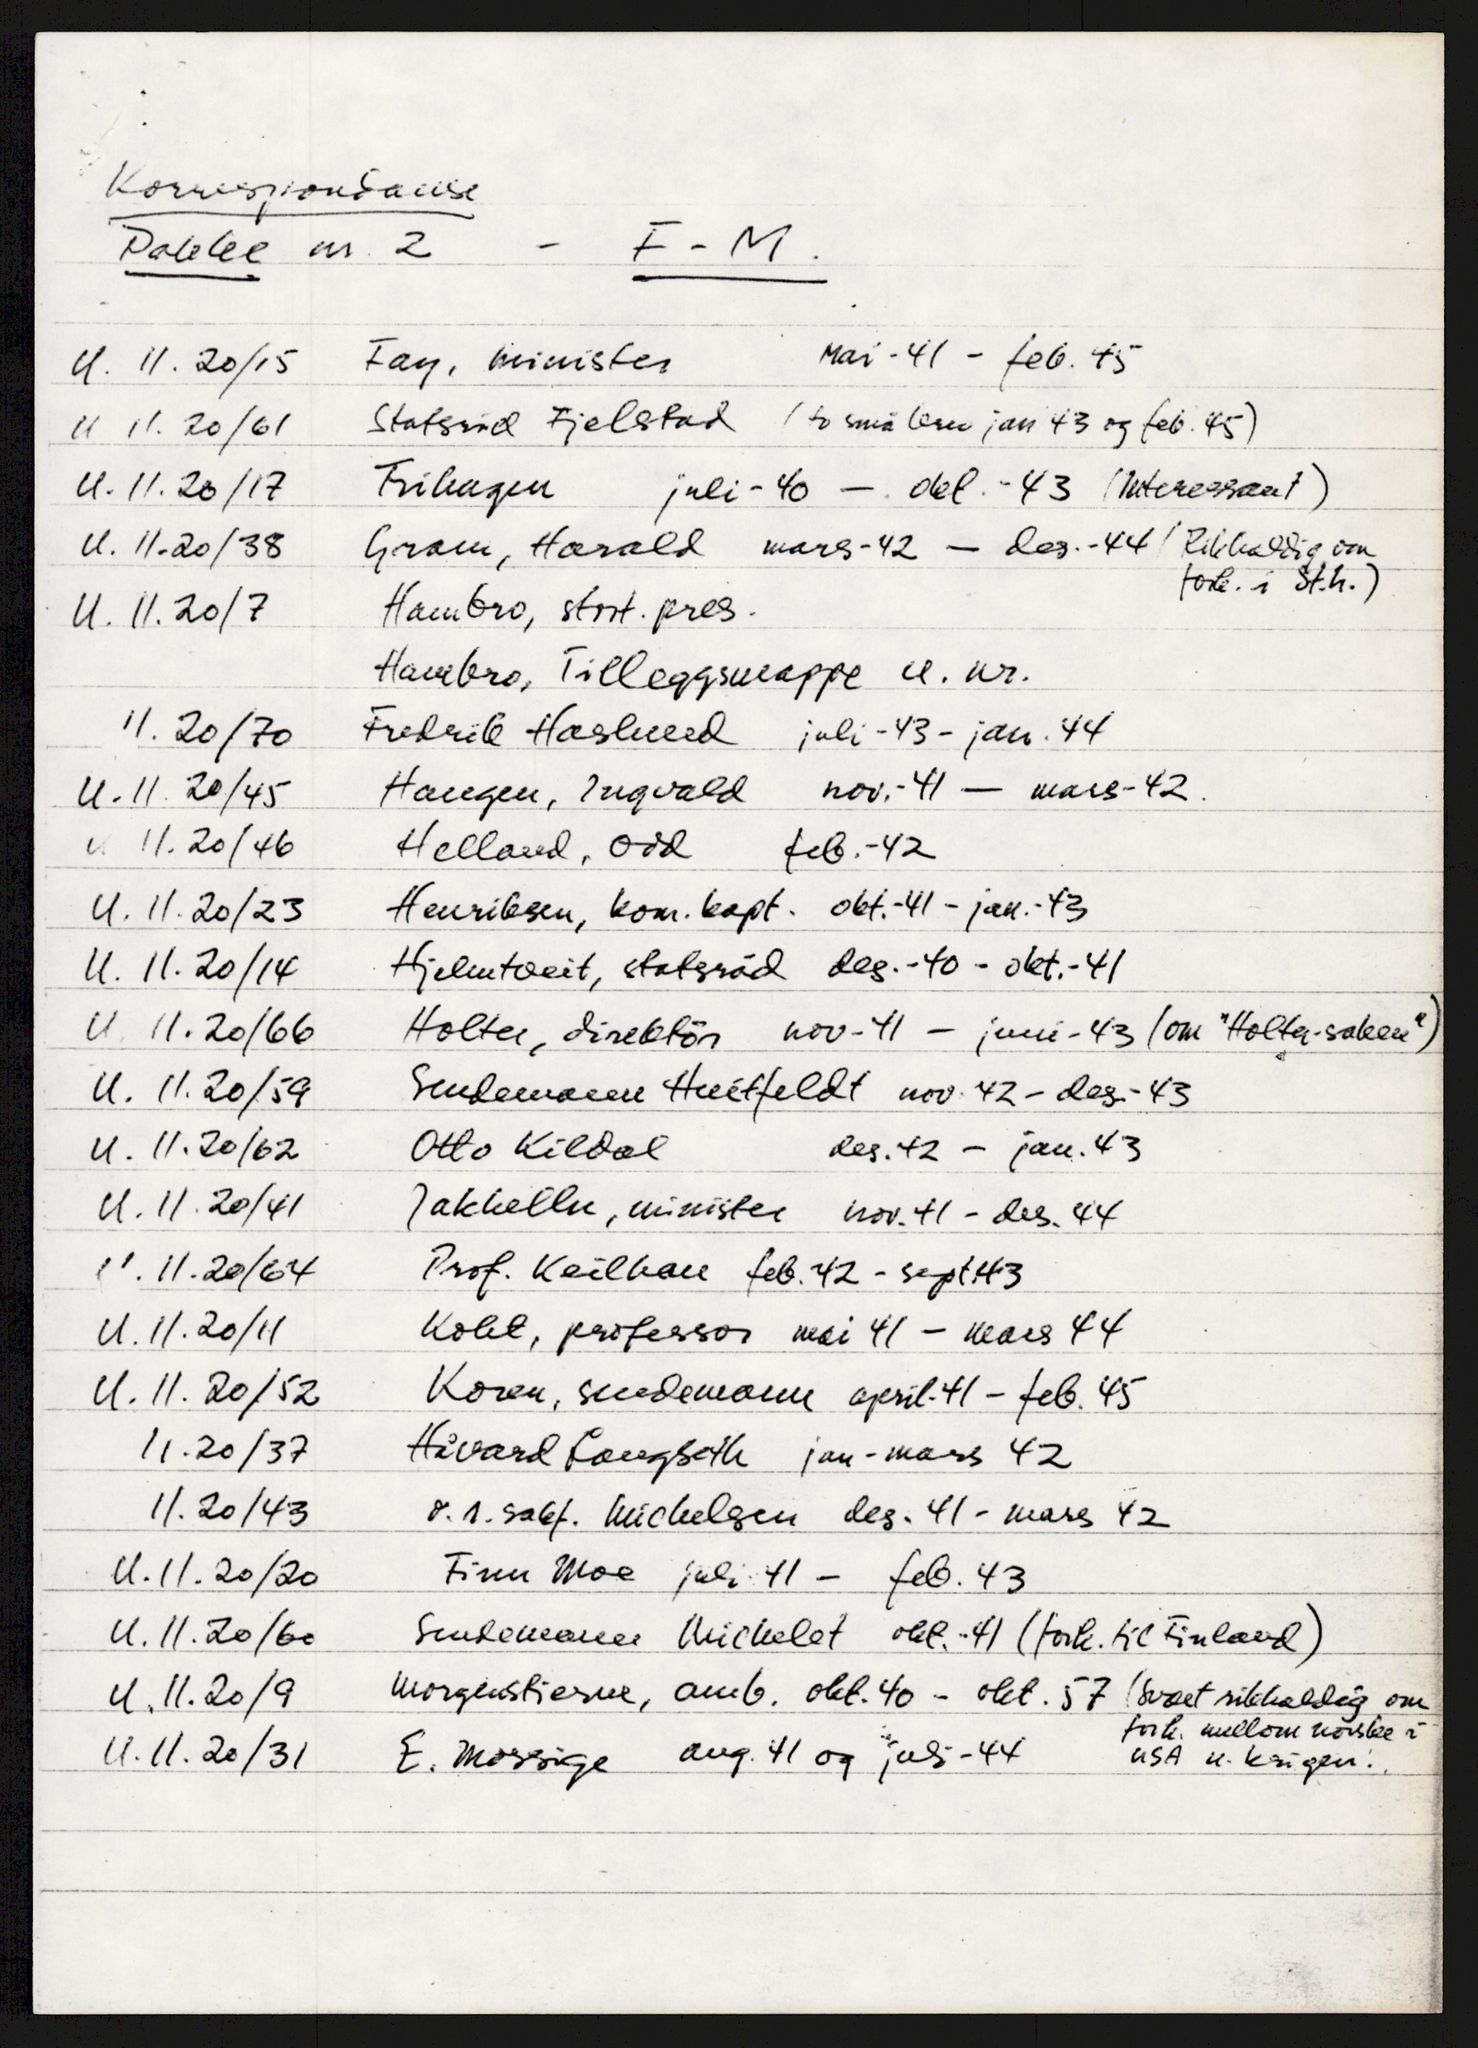 Korrespondanse
Pakke nr. 2 - F - M.
U. 11. 20/15 Fay, minister mai-41 - feb. 45
U 11. 20/61 Statsråd Fjelstad (to små brev jan 43 og feb. 45)
U. 11. 20/17 Frihagen juli-40 - okt. -43 (Interessant)
U. 11.20/38 Gram, Harald mars-42 - des.-44 (Rikholdig om
forh. i St.h.)
U. 11. 20/7 Hambro, stort. pres.
Hambro, Tilleggsmappe u. nr.
11. 20/70 Fredrik Haslund juli-43 - jan. 44
U. 11 20/45 Haugen, Ingvald nov.-41 - mars-42.
U. 11. 20/46 Helland, Odd feb.-42
U. 11. 20/23 Henriksen, kom. kapt. okt.-41 - jan.-43
U. 11. 20/14 Hjelmtveit, statsråd des.-40 - okt.-41
U 11. 20/66 Holter, direktör nov-41 - juni-43 (om "Holter-saken")
U. 11. 20/59 Sendemann Huitfeldt nov. 42 - des.-43
U. 11. 20/62 Otto Kildal des. 42 - jan. 43
U. 11. 20/41 Jakhelln, minister nov. 41 - des. 44
U. 11. 20/64 Prof. Keilhau feb. 42 - sept. 43
U. 11. 20/11 Koht, professor mai 41 - mars 44
U. 11. 20/52 Koren, sendemann april-41 - feb. 45
11. 20/37 Håvard Langseth jan - mars 42
11. 20/43 o. r. sakf. Michelsen des. 41 - mars 42
U. 11. 20/20 Finn Moe juli 41 - feb. 43
U. 11. 20/60 Sendemann Michelet okt.-41 (forh. til Finland)
U. 11. 20/9 Morgenstierne, amb. okt. 40 - okt. 57 (Svært rikholdig om
forh. mellom norske i
U. 11. 20/31 E. Mossige aug. 41 og juli-44 USA u. krigen.